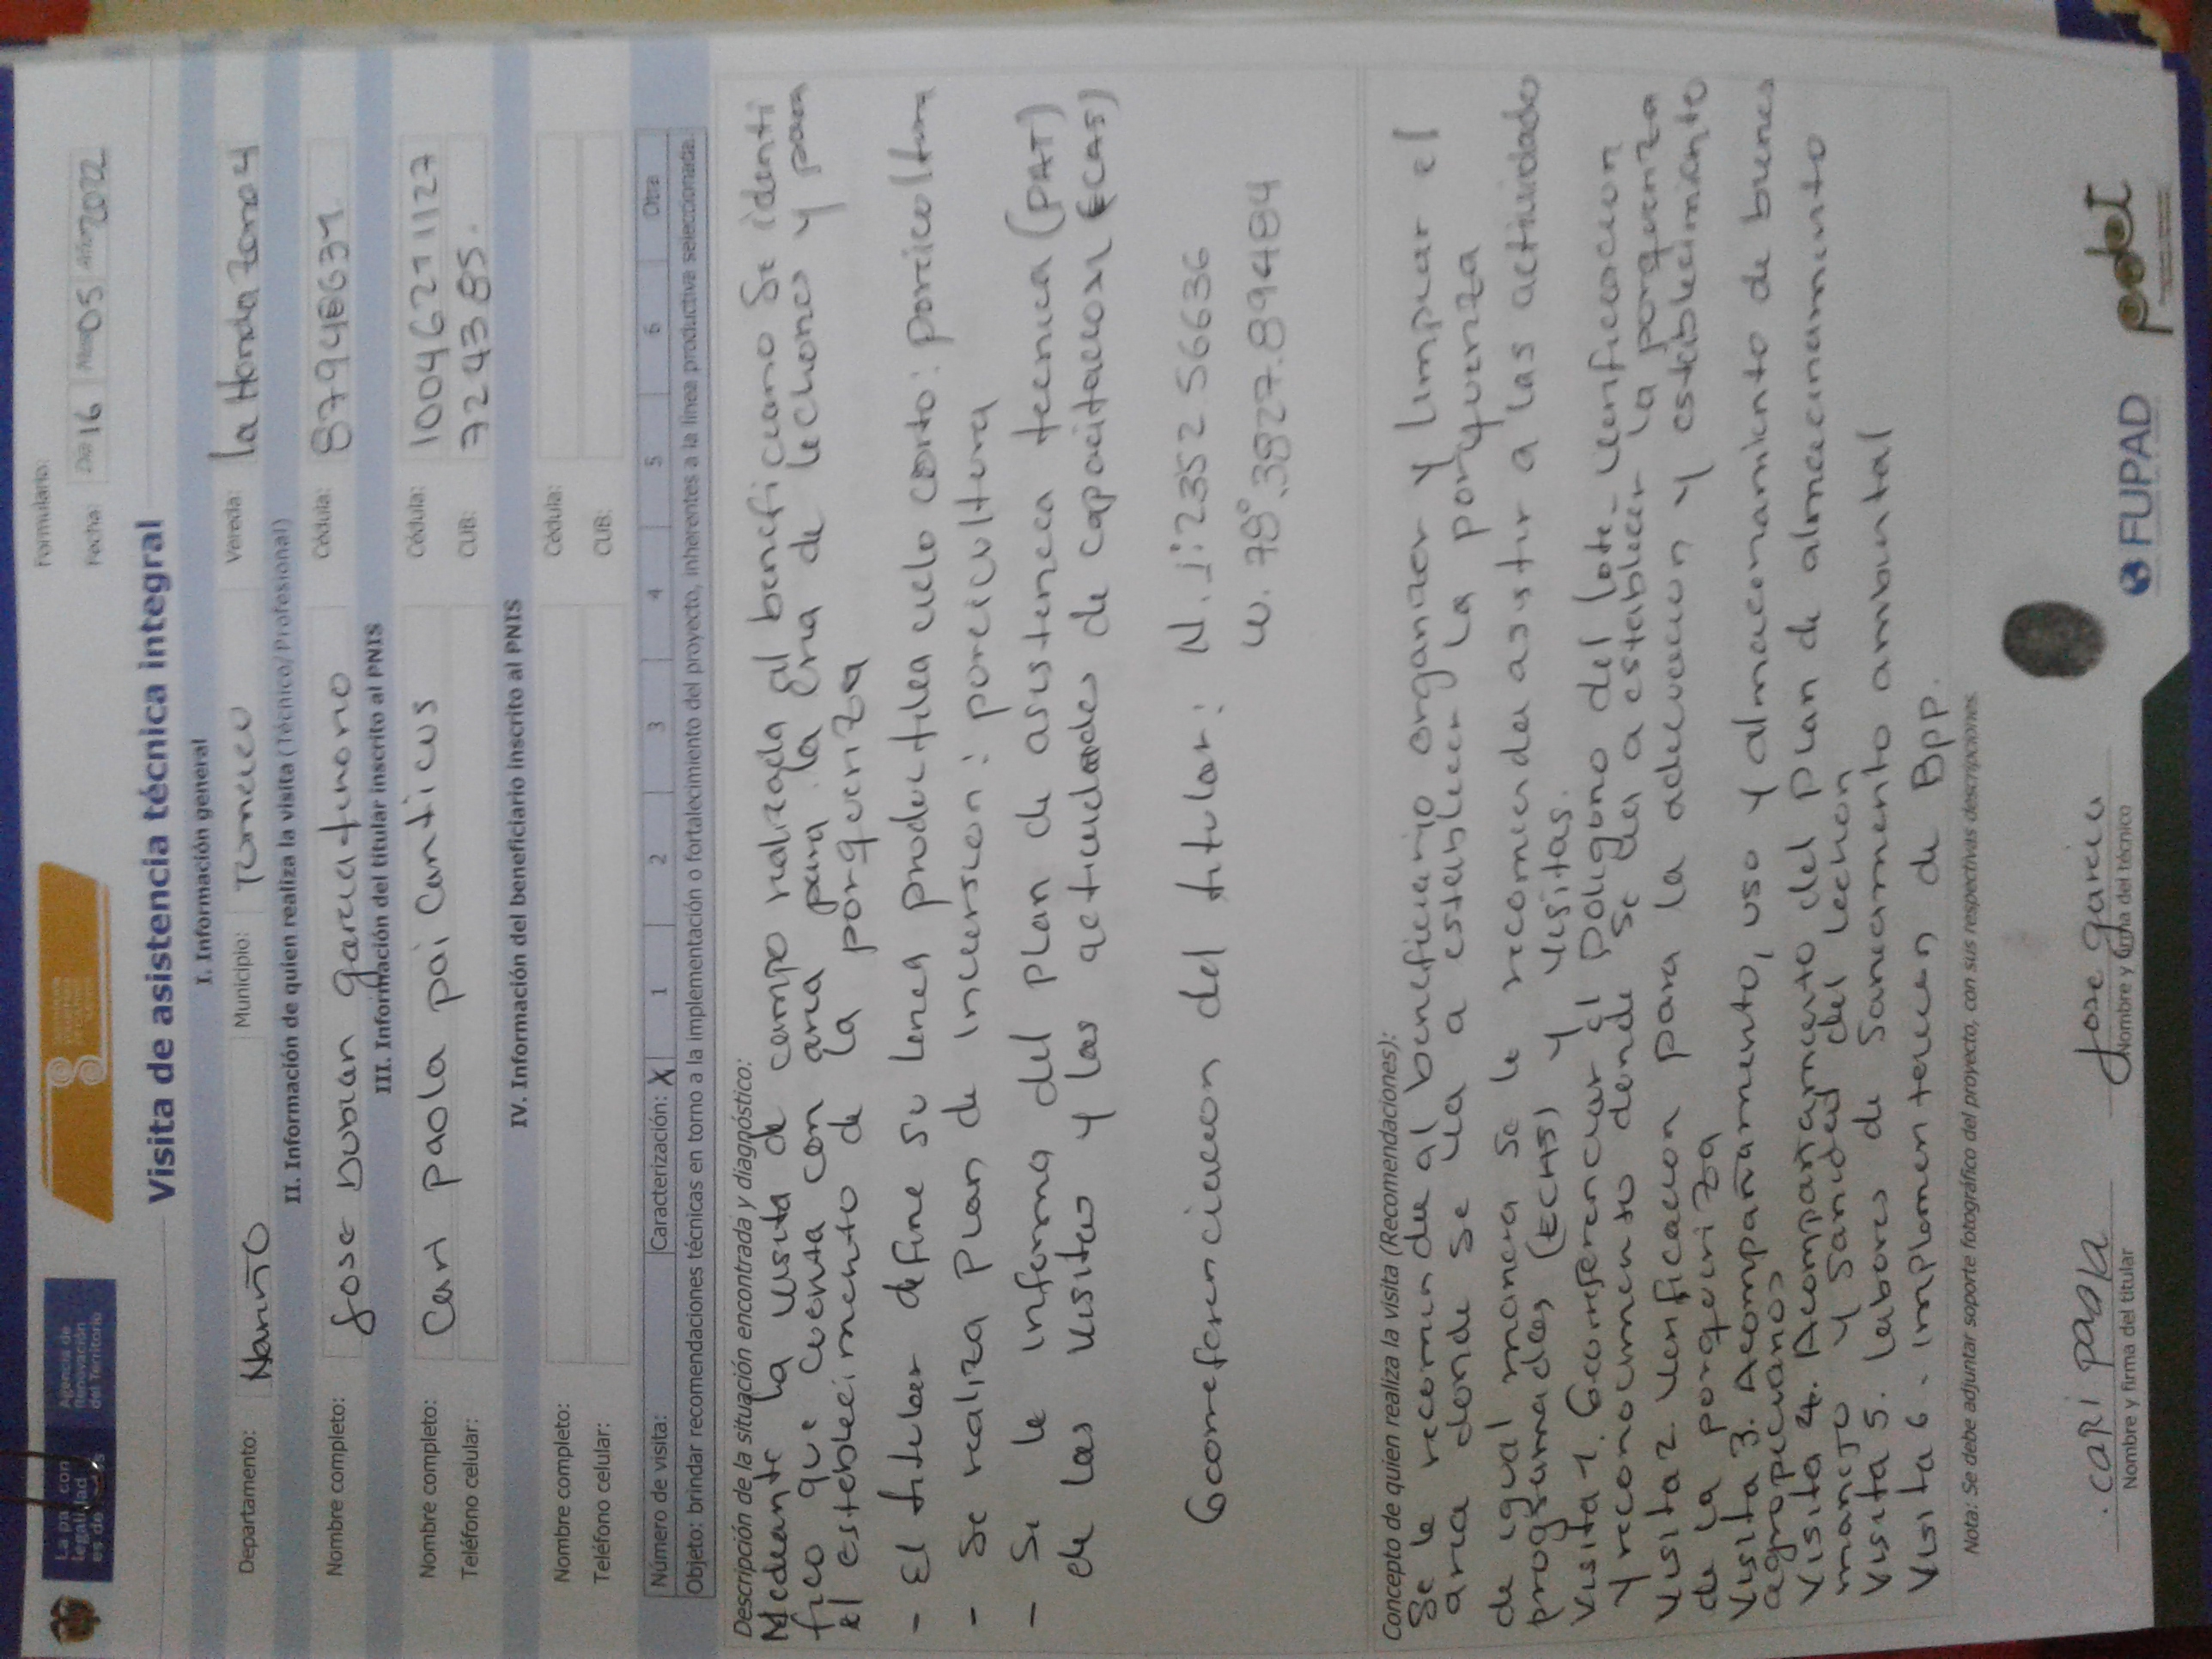 La paz con
legalidad
es de
Agencia de
Renovación
del Territorio
Formulario:
Fecha: Día 16 Mes 05 Año 2022
Visita de asistencia técnica integral
I. Información general
Departamento: Nariño Municipio: Tumaco Vereda: la Honda Zona 4
II. Información de quien realiza la visita (Técnico/Profesional)
Nombre completo: Jose Duban garcia tinono Cédula:
III. Información del titular inscrito al PNIS
Nombre completo: Cari paola pai Canticus Cédula: 1004621127
Teléfono celular: CUB: 7224385.
IV. Información del beneficiario inscrito al PNIS
Nombre completo: Cédula:
Teléfono celular: CUB:
Número de visita: Caracterización: X 1 2 3 4 5 6 Otra
Objeto: brindar recomendaciones técnicas en torno a la implementación o fortalecimiento del proyecto, inherentes a la línea productiva seleccionada.
Descripción de la situación encontrada y diagnóstico:
Mediante la visita de campo realizada al beneficiario Se identi
fico que cuenta con area para la Cria de lechones y para
el establecimiento de la porqueriza
- El titular define su linea productiva ciclo corto: porricoltura
- Se realiza plan de incuersion: poricicultura
- Se le informa del plan de asistencia tecnica (PAT)
de las visitas y las actividades de capacitacion (ECAS)
Georreferenciacion del titular: N. 1:2352 56636
W. 78°.3827.894484
Concepto de quien realiza la visita (Recomendaciones):
Se le recomienda al beneficiario organizar y limpiar el
area donde se va a establecer la porqueriza
de igual manera se le recomienda asistir a las actividade
programadas (ECAS) y visitas.
Visita 1. Georreferenciar el poligono del lote - verificacion
y reconocimiento donde se va a establecer la porqueriza
Visita 2 verificacion para la adecuacion y establecimiento
de la porqueriza
Visita 3. Acompañamiento, uso y almacenamiento de bienes
agropecuarios
Visita 4. Acompañamiento del plan de almacenamiento
manejo y sanidad del lechon
Visita 5. labores de saneamiento ambiental
Visita 6. implementacion de Bpp.
Nota: Se debe adjuntar soporte fotográfico del proyecto, con sus respectivas descripciones.
cari paola
Nombre y firma del titular
Jose garcia
Nombre y firma del técnico
FUPAD
podet